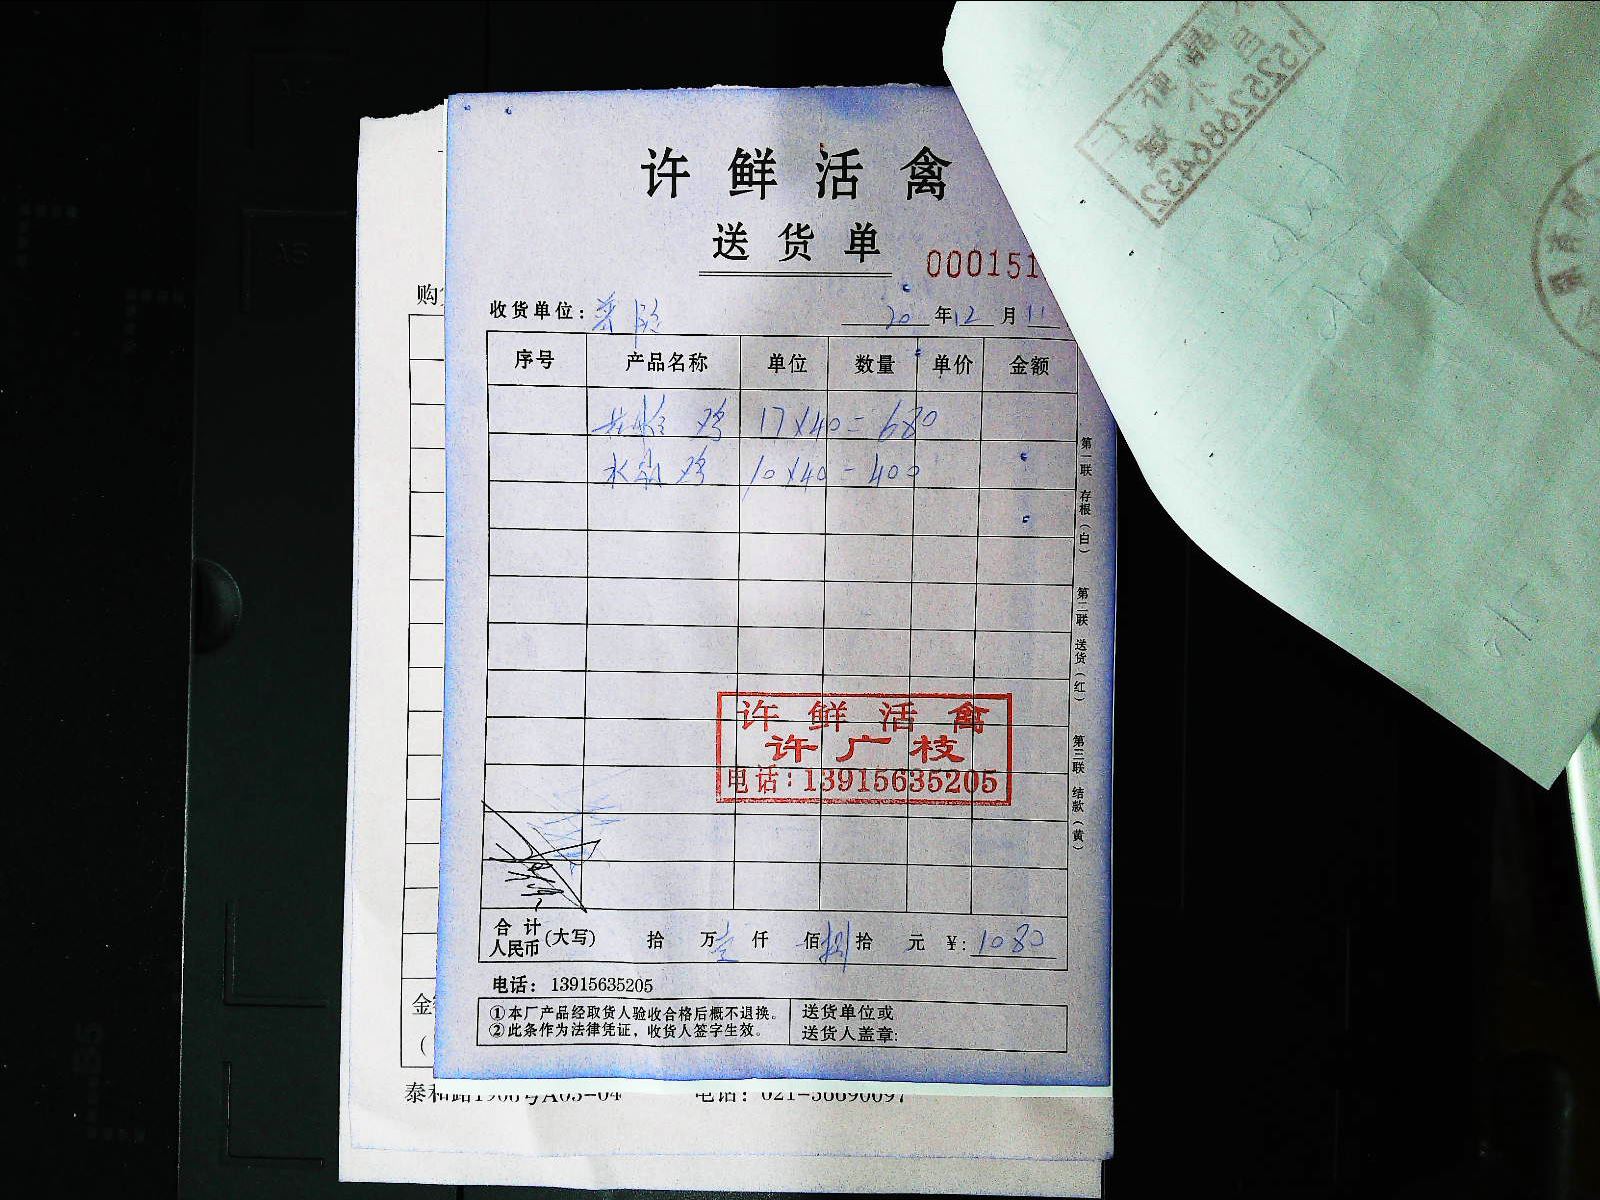 许鲜活禽
送货单
000151
收货单位:
20 年 12 月 11
序号 产品名称 单位 数量 单价 金额
鸡 17×40=680
鸡 10×40=400
第一联 存根（白） 第二联 送货（红） 第三联 结款（黄）
许鲜活禽
许广枝
电话:13915635205
合计人民币(大写) 拾 万 壹 仟 佰 捌 拾 元 ¥: 1080
电话: 13915635205
①本厂产品经取货人验收合格后概不退换。
②此条作为法律凭证，收货人签字生效。
送货单位或
送货人盖章:
购
金
(
15252686432